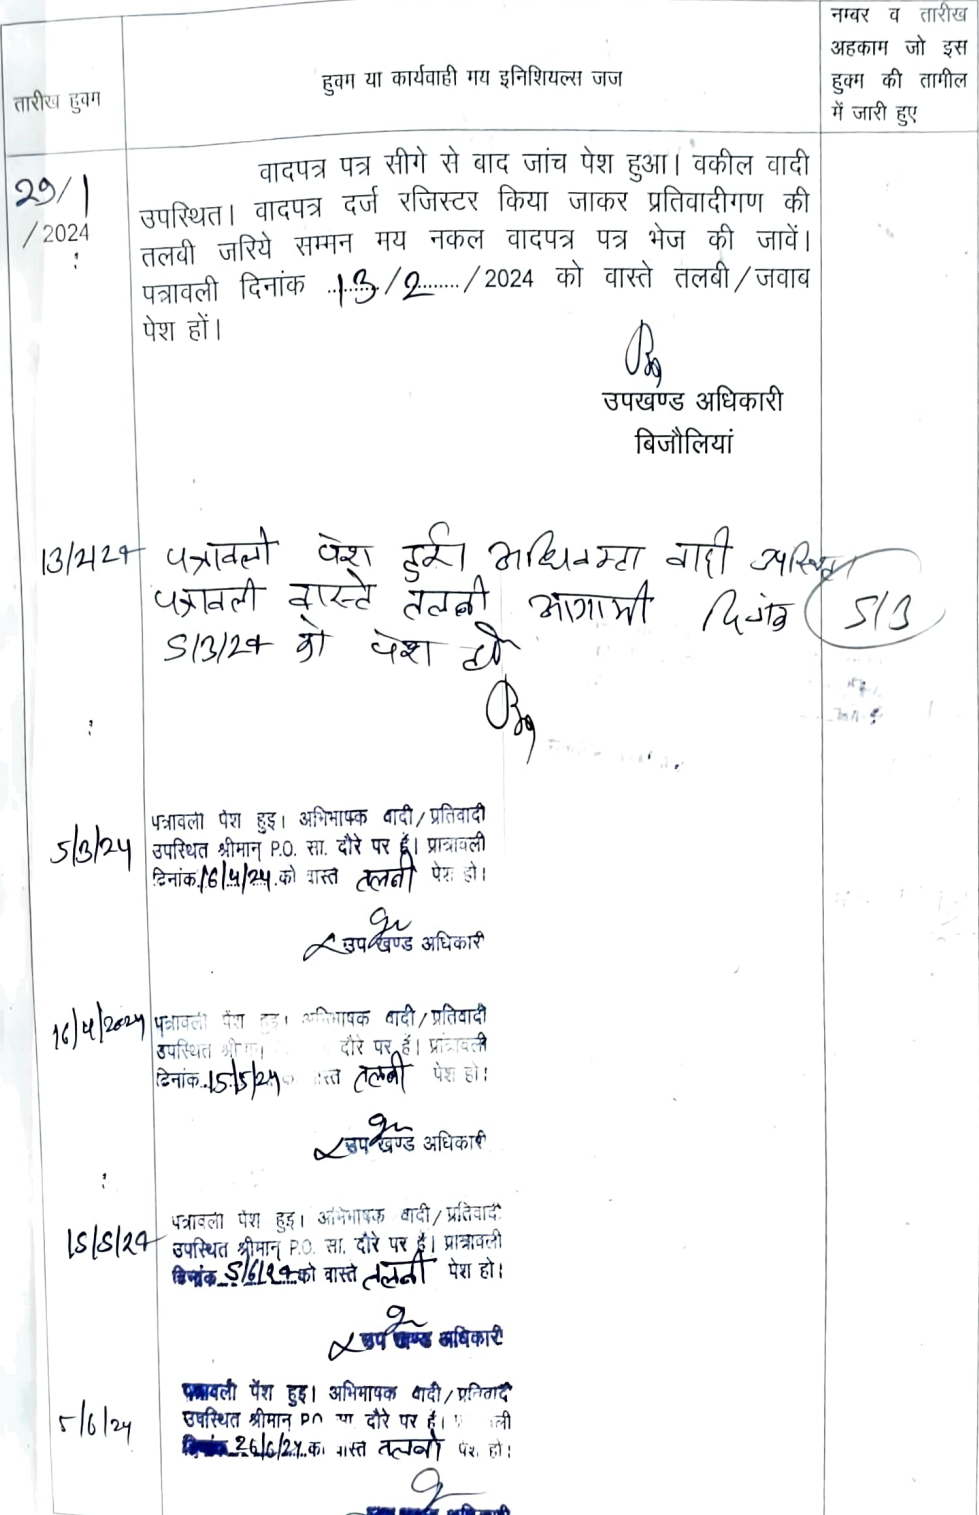 तारीख हुक्म
हुक्म या कार्यवाही मय इनिशियल्स जज
नम्बर व तारीख
अहकाम जो इस
हुक्म की तामील
में जारी हुए
29/1
/2024
वादपत्र पत्र सीगे से बाद जांच पेश हुआ। वकील वादी
उपस्थित। वादपत्र दर्ज रजिस्टर किया जाकर प्रतिवादीगण की
तलबी जरिये सम्मन मय नकल वादपत्र पत्र भेज की जावें।
पत्रावली दिनांक 13/2/2024 को वास्ते तलबी/जवाब
पेश हों।
उपखण्ड अधिकारी
बिजौलियां
13/2/24 पत्रावली पेश हुई। अधिवक्ता वादी उपस्थित
पत्रावली वास्ते तलबी आगामी दिनांक 5/3
5/3/24 को पेश हो
5/3/24
पत्रावली पेश हुइ। अभिभाषक वादी/प्रतिवादी
उपस्थित श्रीमान् P.O. सा. दौरे पर हैं। प्रात्रावली
दिनांक 16/4/24 को वास्ते तलबी पेश हो।
उप खण्ड अधिकारी
16/4/2024
पत्रावली पेश हुइ। अभिभाषक वादी/प्रतिवादी
उपस्थित दौरे पर हैं। प्रात्रावली
दिनांक 15/5/24 तलबी पेश हो।
उप खण्ड अधिकारी
15/5/24
पत्रावली पेश हुइ। अभिभाषक वादी/प्रतिवादी
उपस्थित श्रीमान् P.O. सा. दौरे पर हैं। प्रात्रावली
दिनांक 5/6/24 को वास्ते तलबी पेश हो।
उप खण्ड अधिकारी
5/6/24
पत्रावली पेश हुइ। अभिभाषक वादी/प्रतिवादी
उपस्थित श्रीमान् दौरे पर हैं।
दिनांक 26/6/24 वास्ते तलबी पेश हो।
अधिकारी